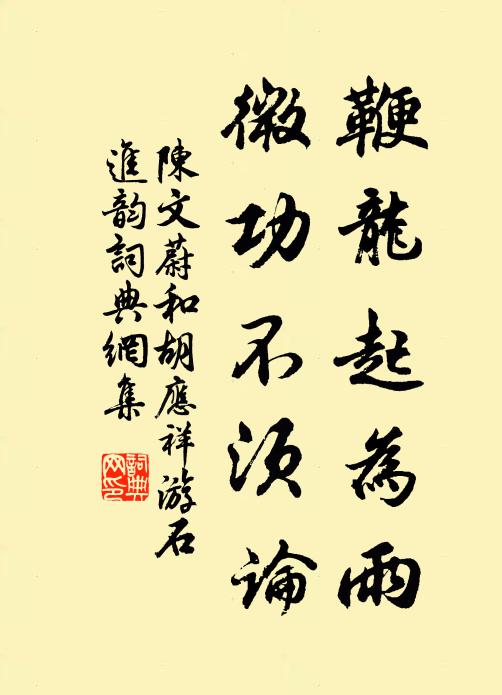 鞭龍起為雨
微功不須論
陳文蔚和胡應祥游石
進韵詞典網集
詞典
网印